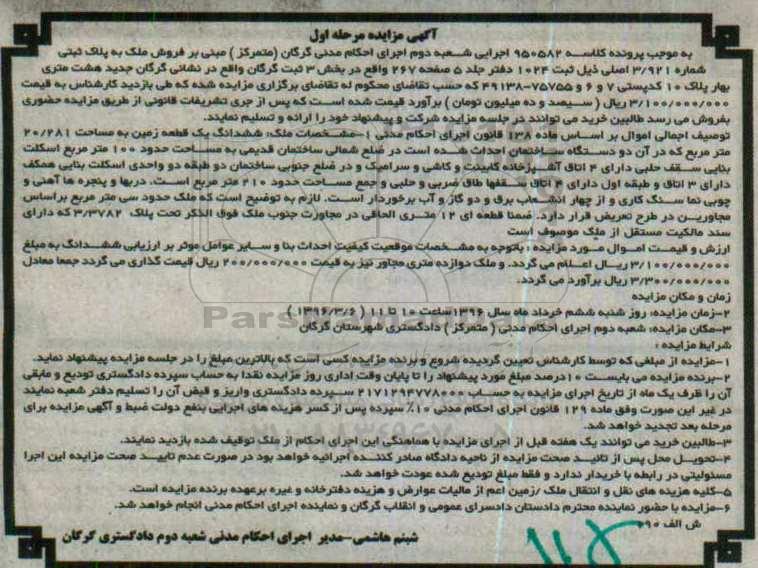 آگهی مزایده مرحله اول
به موجب پرونده کلاسه ۹۵۰۵۸۲ اجرایی شعبه دوم اجرای احکام مدنی گرگان (متمرکز) مبنی بر فروش ملک به پلاک ثبتی
شماره ۳/۹۲۱ اصلی ذیل ثبت ۱۰۲۴ دفتر جلد ۵ صفحه ۲۶۷ واقع در بخش ۳ ثبت گرگان واقع در نشانی گرگان جدید هشت متری
بهار پلاک ۱۰ کدپستی ۷ و ۶ و ۷۵۷۵۵-۴۹۱۳۸ که حسب تقاضای محکوم له تقاضای برگزاری مزایده شده که طی بازدید کارشناس به قیمت
۳/۱۰۰/۰۰۰/۰۰۰ ریال (سیصد و ده میلیون تومان) برآورد قیمت شده است که پس از جری تشریفات قانونی از طریق مزایده حضوری
بفروش می رسد طالبین خرید می توانند در جلسه مزایده شرکت و پیشنهاد خود را ارائه و تسلیم نمایند.
توصیف اجمالی اموال بر اساس ماده ۱۳۸ قانون اجرای احکام مدنی ۱-مشخصات ملک: ششدانگ یک قطعه زمین به مساحت ۲۰/۲۸۱
متر مربع که در آن دو دستگاه ساختمان احداث شده است در ضلع شمالی ساختمان قدیمی به مساحت حدود ۱۰۰ متر مربع اسکلت
بنایی سقف حلبی دارای ۴ اتاق آشپزخانه کابینت و کاشی و سرامیک و در ضلع جنوبی ساختمان دو طبقه دو واحدی اسکلت بنایی همکف
دارای ۳ اتاق و طبقه اول دارای ۴ اتاق سقفها طاق ضربی و حلبی و جمع مساحت حدود ۲۱۰ متر مربع است. دربها و پنجره ها آهنی و
چوبی نما سنگ کاری و از چهار انشعاب برق و دو گاز و آب برخوردار است. لازم به توضیح است که ملک حدود سی متر مربع براساس
مجاورین در طرح تعریض قرار دارد. ضمنا قطعه ای ۱۲ متری الحاقی در مجاورت جنوب ملک فوق الذکر تحت پلاک ۳/۳۷۸۲ که دارای
سند مالکیت مستقل از ملک موصوف است
ارزش و قیمت اموال مورد مزایده: باتوجه به مشخصات موقعیت کیفیت احداث بنا و سایر عوامل موثر بر ارزیابی ششدانگ به مبلغ
۳/۱۰۰/۰۰۰/۰۰۰ ریال اعلام می گردد. و ملک دوازده متری مجاور نیز به قیمت ۲۰۰/۰۰۰/۰۰۰ ریال قیمت گذاری می گردد جمعا معادل
۳/۳۰۰/۰۰۰/۰۰۰ ریال برآورد می گردد.
زمان و مکان مزایده
۲-زمان مزایده: روز شنبه ششم خرداد ماه سال ۱۳۹۶ساعت ۱۰ تا ۱۱ (۱۳۹۶/۳/۶)
۳-مکان مزایده: شعبه دوم اجرای احکام مدنی (متمرکز) دادگستری شهرستان گرگان
شرایط مزایده:
۱-مزایده از مبلغی که توسط کارشناس تعیین گردیده شروع و برنده مزایده کسی است که بالاترین مبلغ را در جلسه مزایده پیشنهاد نماید.
۲-برنده مزایده می بایست ۱۰درصد مبلغ مورد پیشنهاد را تا پایان وقت اداری روز مزایده نقدا به حساب سپرده دادگستری تودیع و مابقی
آن را ظرف یک ماه از تاریخ اجرای مزایده به حساب ۲۱۷۱۲۹۴۷۷۸۰۰۰ سپرده دادگستری واریز و قبض آن را تسلیم دفتر شعبه نمایند
در غیر این صورت وفق ماده ۱۲۹ قانون اجرای احکام مدنی ۱۰٪ سپرده پس از کسر هزینه های اجرایی بنفع دولت ضبط و آگهی مزایده برای
مرحله بعد تجدید خواهد شد.
۳-طالبین خرید می توانند یک هفته قبل از اجرای مزایده با هماهنگی این اجرای احکام از ملک توقیف شده بازدید نمایند.
۴-تحویل محل پس از تائید صحت مزایده از ناحیه دادگاه صادر کننده اجرائیه خواهد بود در صورت عدم تایید صحت مزایده این اجرا
مسئولیتی در رابطه با خریدار ندارد و فقط مبلغ تودیع شده عودت خواهد شد.
۵-کلیه هزینه های نقل و انتقال ملک /زمین اعم از مالیات عوارض و هزینه دفترخانه و غیره برعهده برنده مزایده است.
۶-مزایده با حضور نماینده محترم دادستان دادسرای عمومی و انقلاب گرگان و نماینده اجرای احکام مدنی انجام خواهد شد.
ش الف ۰۹۰
شبنم هاشمی-مدیر اجرای احکام مدنی شعبه دوم دادگستری گرگان